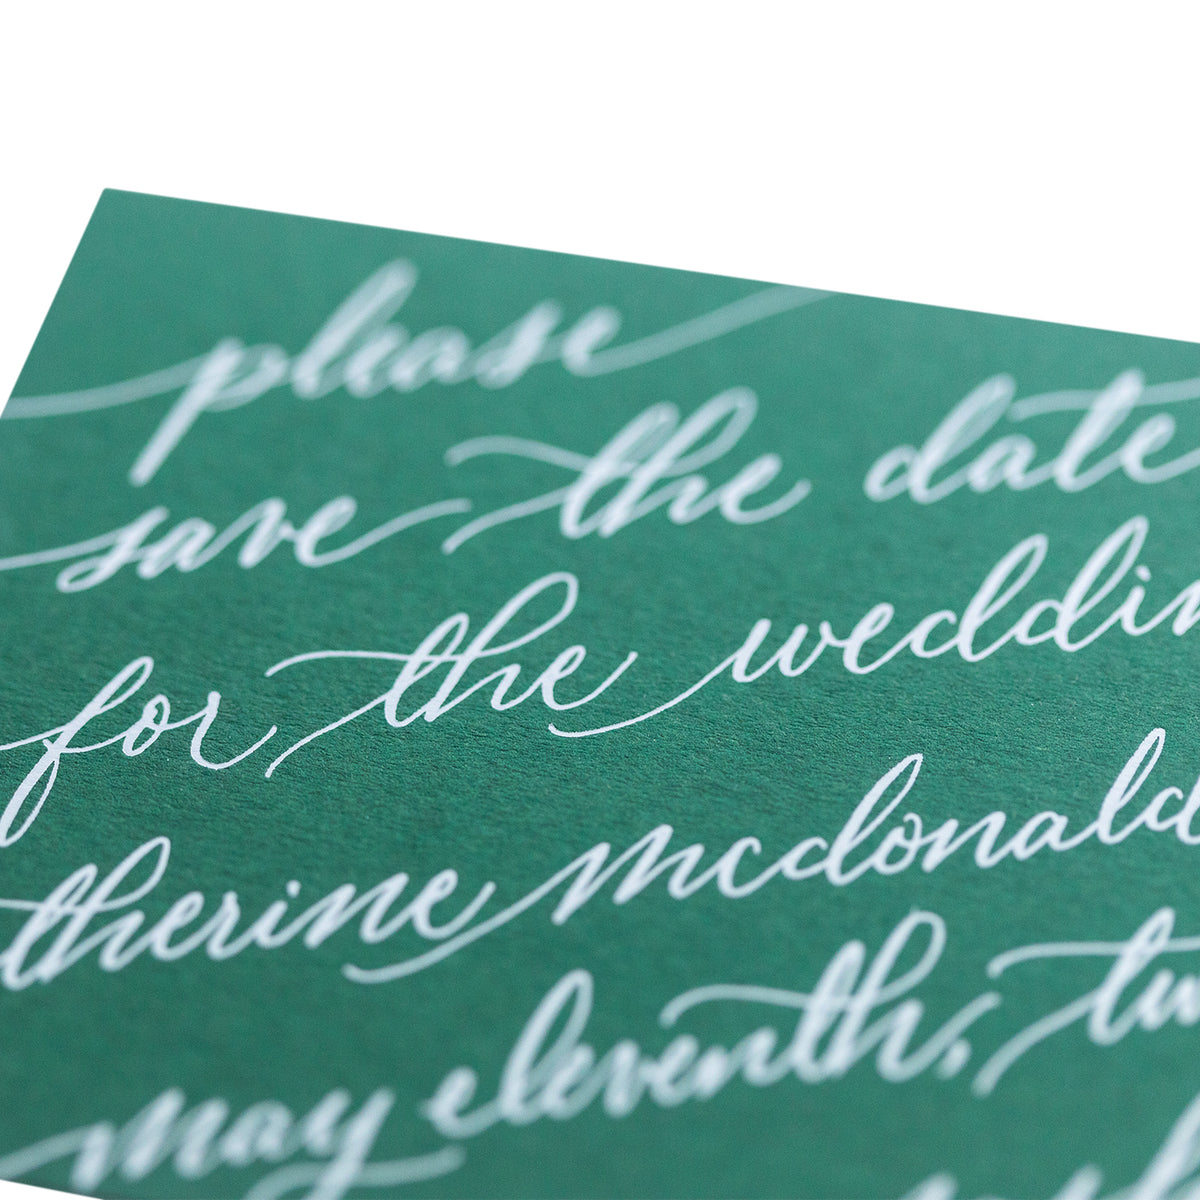 please
save the date
for the weddin
therine mcdonald
may eleventh, tw